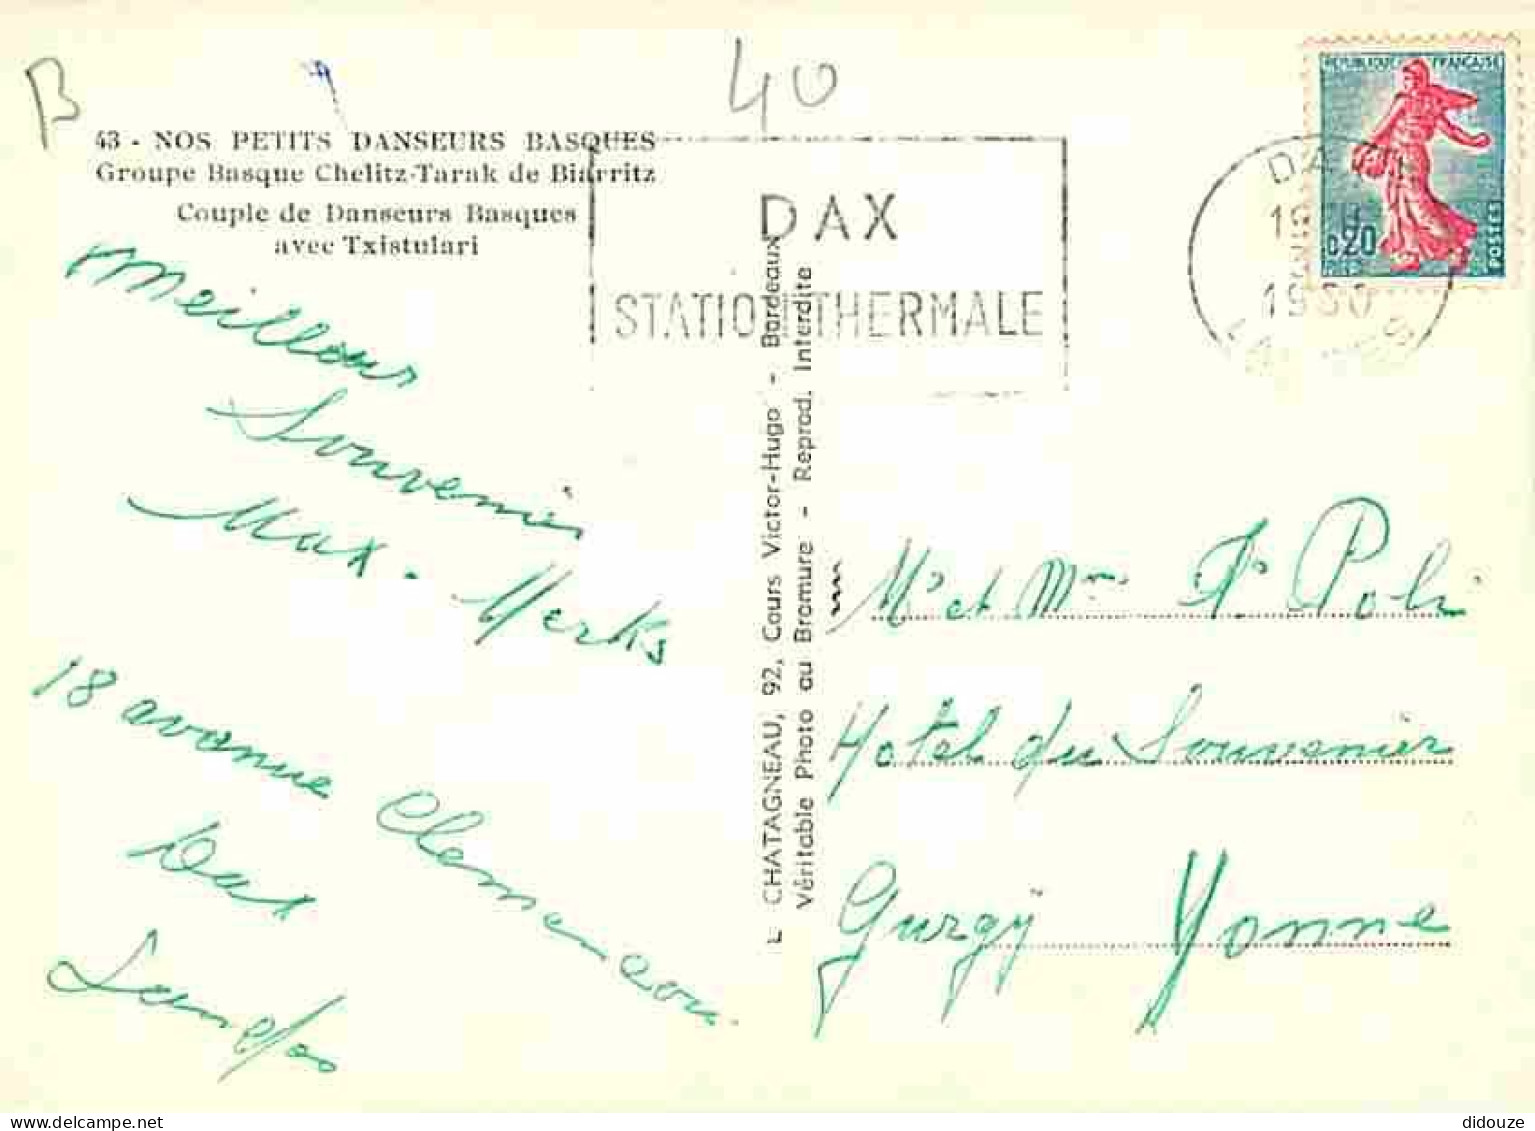 B
40
43 - NOS PETITS DANSEURS BASQUES
Groupe Basque Chelitz-Tarak de Biarritz
Couple de Danseurs Basques
avec Txistulari
DAX
STATION THERMALE
REPUBLIQUE FRANÇAISE
0,20
POSTES
DAX
1960
LANDES
Meillour
Souvenir
Max. Merks
18 avenue Clemenceau
Dax
Landes
E CHATAGNEAU, 92, Cours Victor-Hugo - Bordeaux
Véritable Photo au Bromure - Reprod. Interdite
Mr et Mme Poli
Hotel du Souvenier
Gurgÿ Yonne
didouze